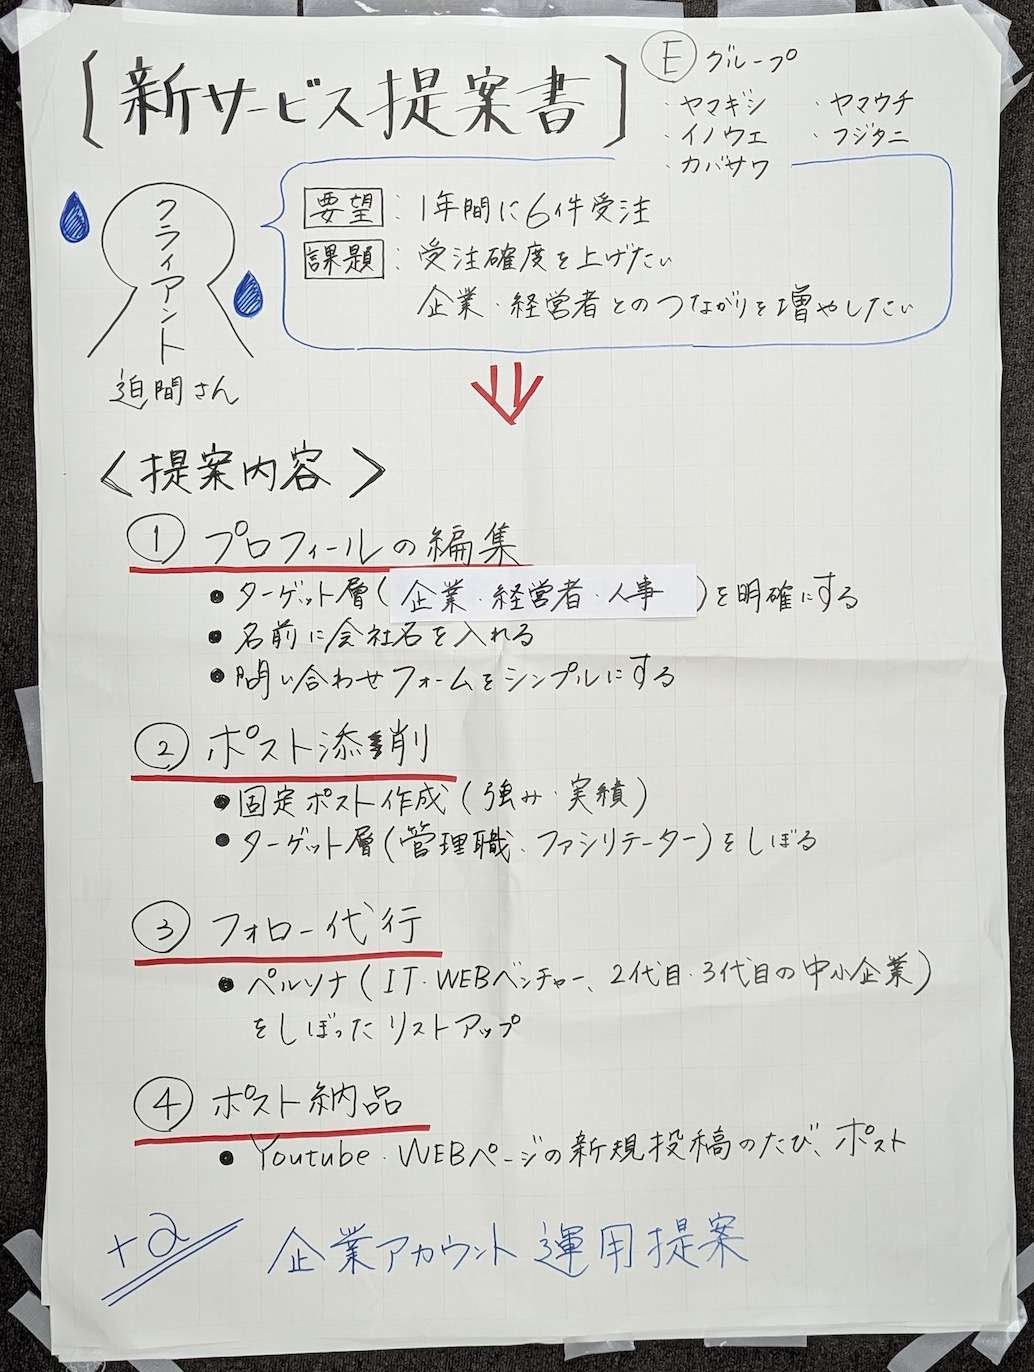 [新サービス提案書]
Ⓔグループ
・ヤマギシ ・ヤマウチ
・イノウエ ・フジタニ
・カバサワ
クライアント
迫間さん
要望：1年間に6件受注
課題：受注確度を上げたい
企業・経営者とのつながりを増やしたい
<提案内容>
① プロフィールの編集
● ターゲット層(企業・経営者・人事)を明確にする
● 名前に会社名を入れる
● 問い合わせフォームをシンプルにする
② ポスト添削
● 固定ポスト作成(強み・実積)
● ターゲット層(管理職、ファシリテーター)をしぼる
③ フォロー代行
● ペルソナ(IT・WEBベンチャー、2代目・3代目の中小企業)
をしぼったリストアップ
④ ポスト納品
● Youtube・WEBページの新規投稿のたび、ポスト
+α 企業アカウント運用提案